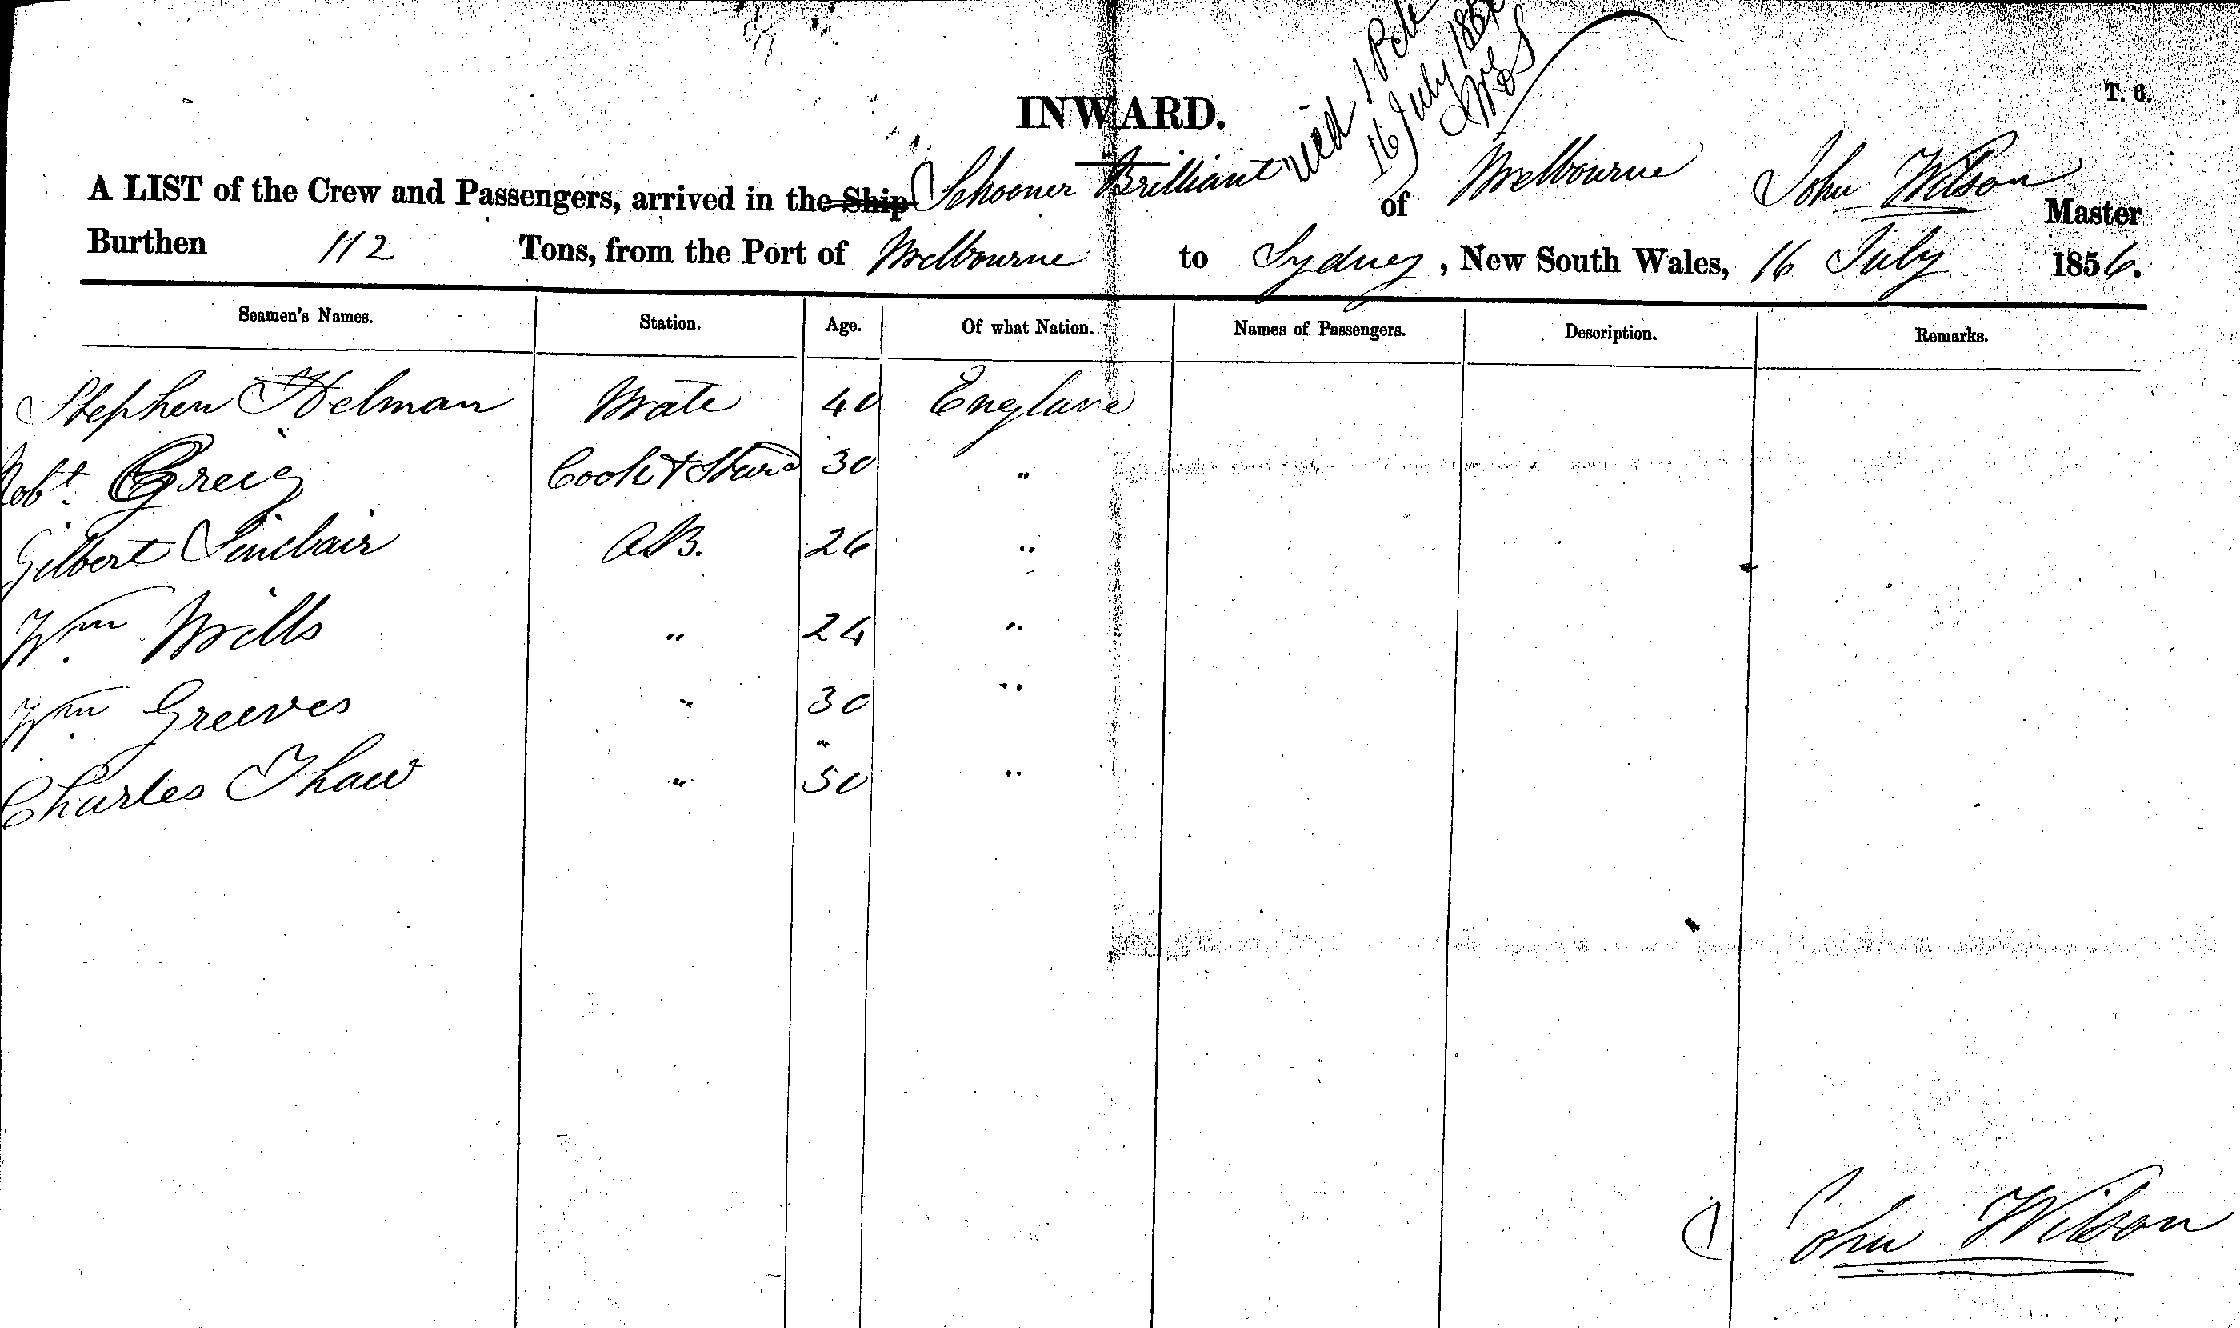 16 July 1856
INWARD.
T. 6.
A LIST of the Crew and Passengers, arrived in the Ship Schooner Brilliant of Melbourne John Wilson Master
Burthen 112 Tons, from the Port of Melbourne to Sydney, New South Wales, 16 July 1856.
Seamen's Names. Station. Age. Of what Nation. Names of Passengers. Description. Remarks.
Stephen Helman Mate 40 England
Robt. Greig Cook & Stewd 30 "
Gilbert Sinclair A.B. 26 "
Wm. Mills " 24 "
Wm. Greeves " 30 "
Charles Thaw " 50 "
John Wilson